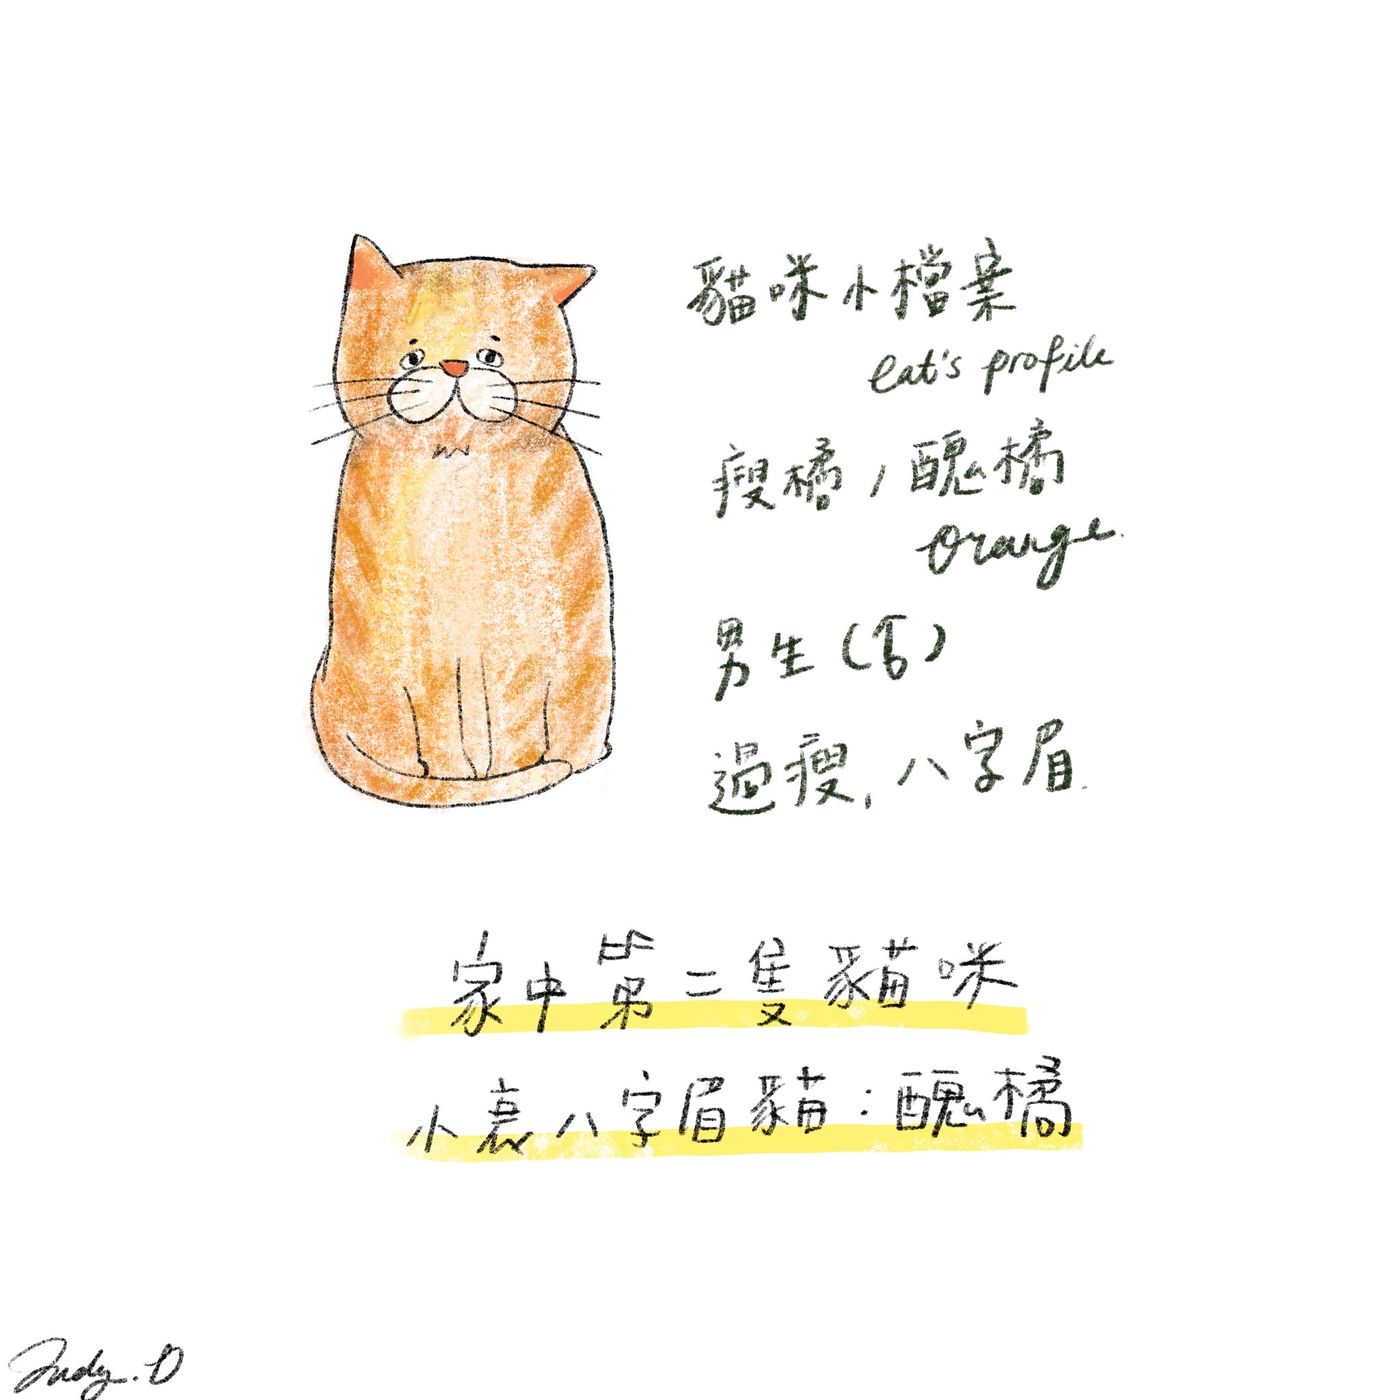 貓咪小檔案
cat's profile
瘦橘，醜橘
orange.
男生
過瘦，八字眉.
家中第二隻貓咪
小衰八字眉貓：醜橘
Judy.D